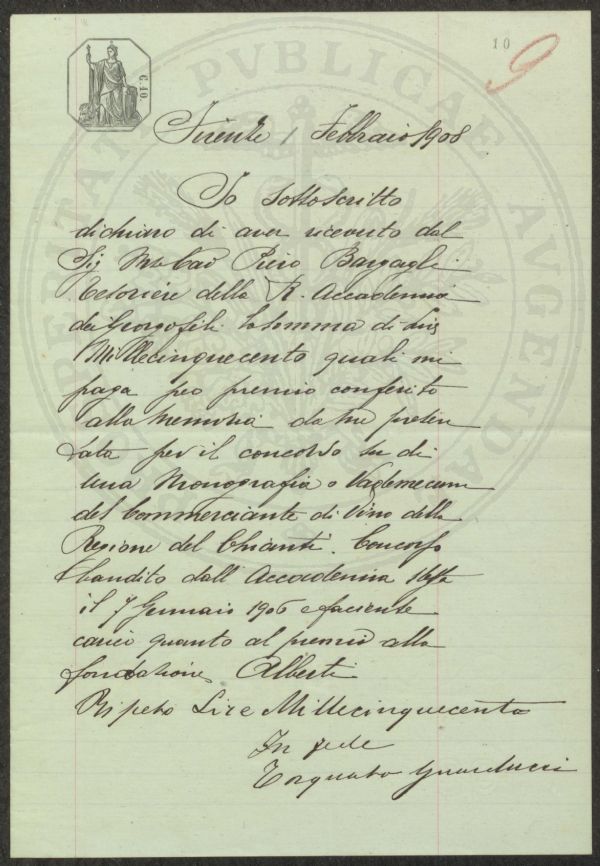 10
9
C. 10.
PROSPERITATI PVBLICAE AVGENDAE
Firenze 1 Febbraio 1908
Io sottoscritto
dichiaro di aver ricevuto dal
Sig Mse Cav Piero Bargagli
tesoriere della R. Accademia
dei Georgofili la somma di Lire
Millecinquecento quali mi
paga per premio conferito
alla memoria da me presen
tata per il concorso su di
una Monografia o Vademecum
del Commerciante di Vino della
Regione del Chianti. Concorso
bandito dall Accademia stessa
il 7 Gennaio 1906 e faciente
carico quanto al premio alla
fondazione Alberti
Ripeto Lire Millecinquecento
In fede
Torquato Guarducci